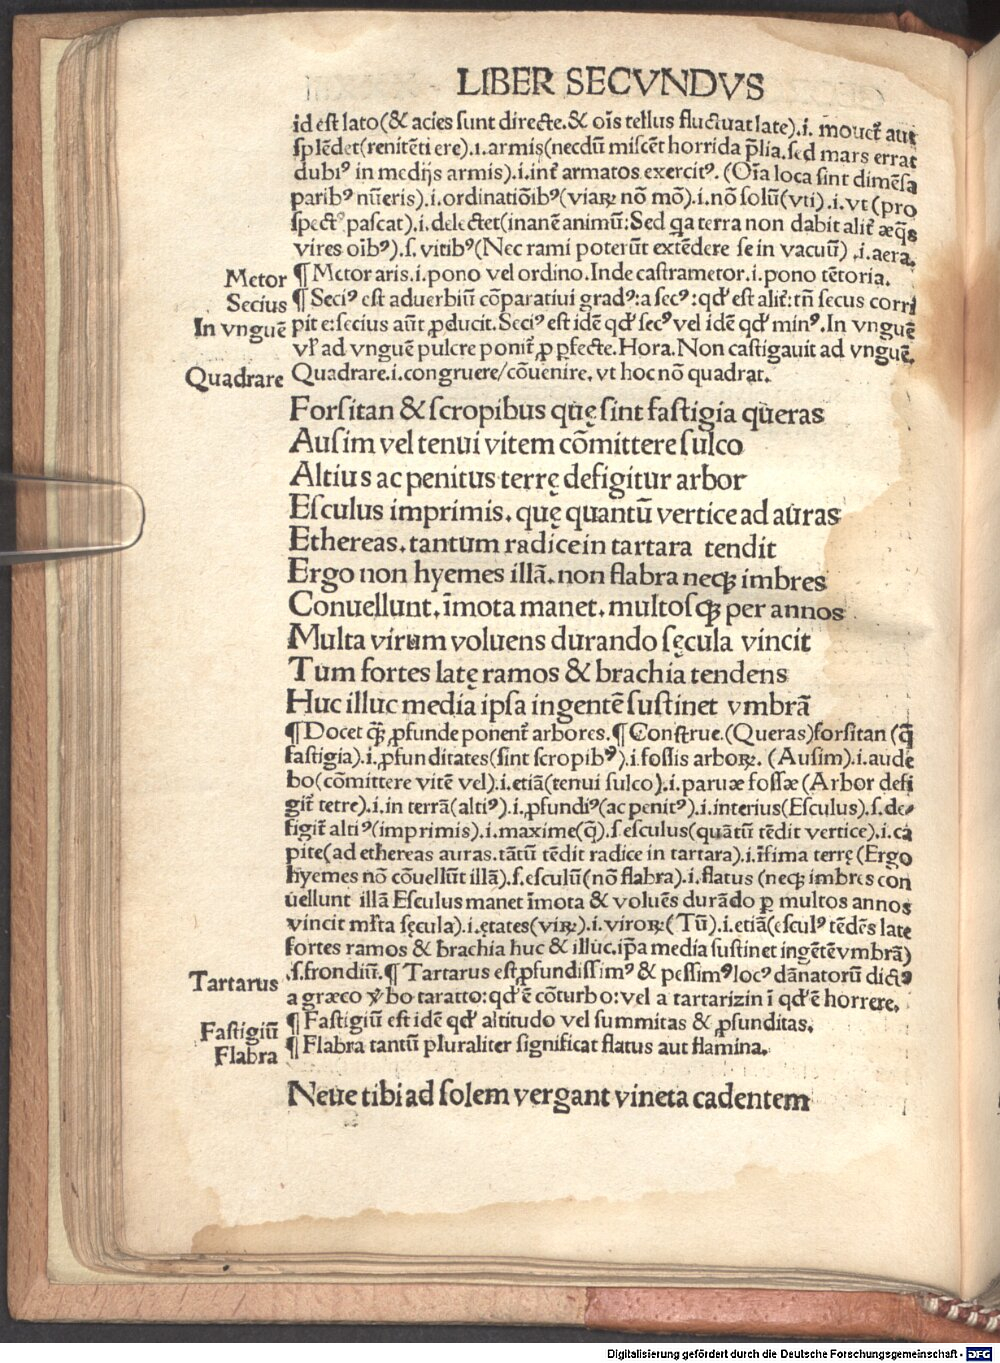 LIBER SECVNDVS
id est lato(& acies sunt directe.& oīs tellus fluctuat late).i. mouet᷑ aut
splēdet(renitēti ere).i.armis(necdū miscēt horrida p̄lia.sed mars errat
dubiꝰ in medijs armis).i.int᷑ armatos exercitꝰ. (Oīa loca sint dimēsa
paribꝰ nūeris).i.ordinatiōibꝰ(viaꝝ nō mō).i.nō solū(vti).i.vt(pro
spectꝰ pascat).i.delectet(inanē animū:Sed qa terra non dabit alit᷑ æq̄s
vires oībꝰ).s.vitibꝰ(Nec rami poterūt extēdere se in vacuū).i.aera.
Metor ¶ Metor aris.i.pono vel ordino.Inde castrametor.i.pono tētoria.
Secius ¶ Seciꝰ est aduerbiū cōparatiui gradꝰ:a secꝰ:qđ est alit᷑:tn̄ secus corri
In vnguē pit e:secius aūt ꝓducit.Seciꝰ est idē qđ secꝰ vel idē qđ minꝰ.In vnguē
vl᷑ ad vnguē pulcre ponit᷑ ꝓ ꝑfecte.Hora.Non castigauit ad vnguē.
Quadrare Quadrare.i.congruere/cōuenire.vt hoc nō quadrat.
Forsitan & scropibus quę sint fastigia queras
Ausim vel tenui vitem cōmittere sulco
Altius ac penitus terrę defigitur arbor
Esculus imprimis.quę quantū vertice ad auras
Ethereas.tantum radice in tartara tendit
Ergo non hyemes illā.non flabra neqꝫ imbres
Conuellunt.īmota manet.multosqꝫ per annos
Multa virum voluens durando sęcula vincit
Tum fortes latę ramos & brachia tendens
Huc illuc media ipsa ingentē sustinet vmbrā
¶ Docet qꝫ ꝓfunde ponent᷑ arbores.¶ Construe.(Queras)forsitan(q̄
fastigia).i.ꝓfunditates(sint scropibꝰ).i.fossis arboꝝ. (Ausim).i.aude
bo(cōmittere vitē vel).i.etiā(tenui sulco).i.paruæ fossæ(Arbor defi
git᷑ tetre).i.in terrā(altiꝰ).i.ꝓfundiꝰ(ac penitꝰ).i.interius(Esculus).s.de
figit᷑ altiꝰ(imprimis).i.maxime(q̄).s esculus(quātū tēdit vertice).i.ca
pite(ad ethereas auras.tātū tēdit radice in tartara).i.īfima terrę(Ergo
hyemes nō cōuellūt illā).s.esculū(nō flabra).i.flatus(neqꝫ imbres con
uellunt illā Esculus manet īmota & voluēs durādo ꝑ multos annos
vincit ml᷑ta sęcula).i.ętates(viꝝ).i.viroꝝ(Tū).i.etiā(esculꝰ tēdēs late
fortes ramos & brachia huc & illuc.ip̄a media sustinet ingētē vmbrā)
Tartarus .s.frondiū.¶ Tartarus est ꝓfundissimꝰ & pessimꝰ locꝰ dānatorū dictꝰ
a græco ꝟbo taratto:qđ ē cōturbo:vel a tartarizin ī qđ ē horrere.
Fastigiū ¶ Fastigiū est idē qđ altitudo vel summitas & ꝓfunditas.
Flabra ¶ Flabra tantū pluraliter significat flatus aut flamina.
Neue tibi ad solem vergant vineta cadentem
Digitalisierung gefördert durch die Deutsche Forschungsgemeinschaft - DFG